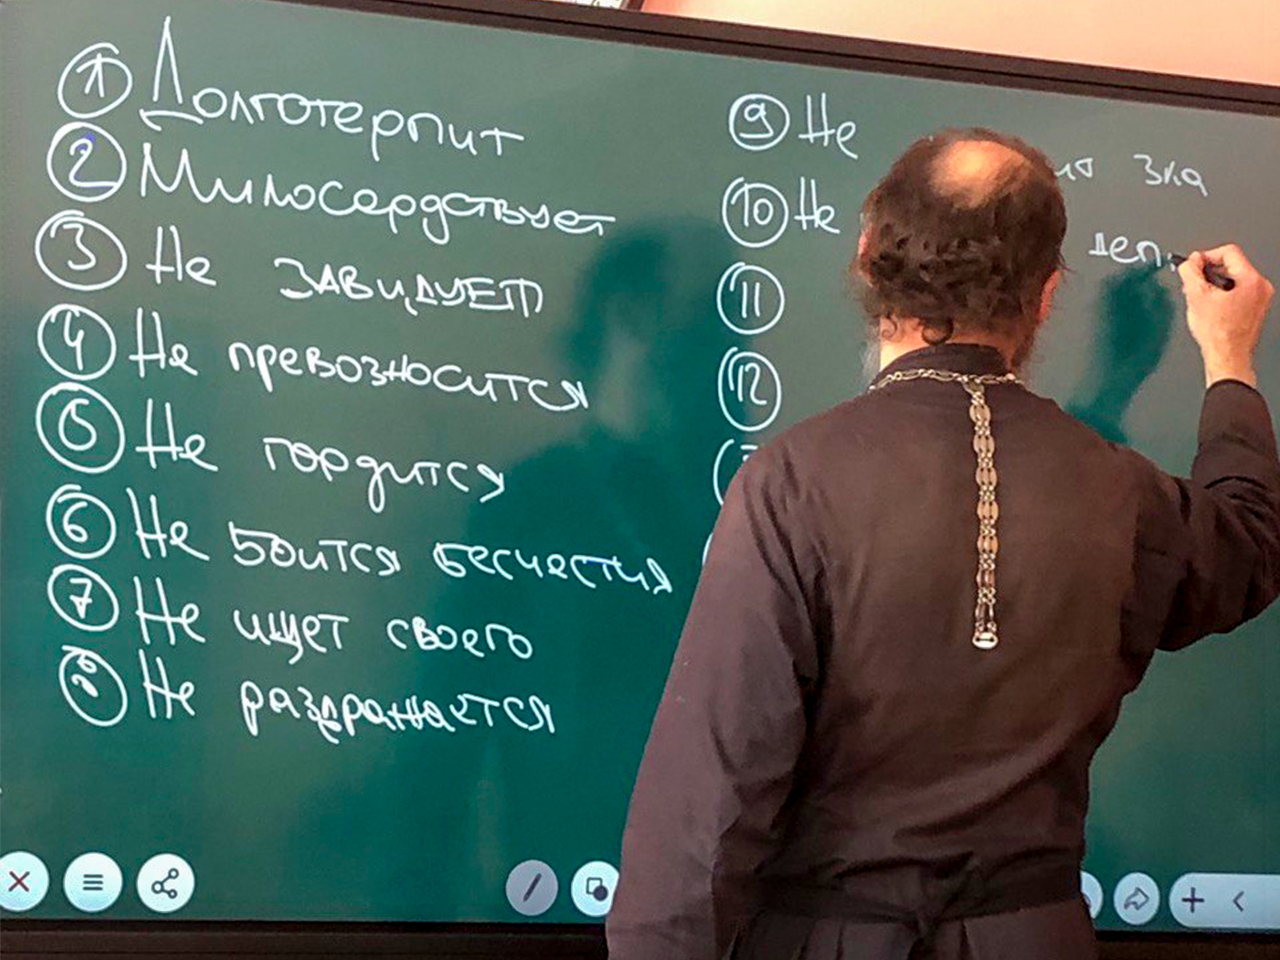 1 Долготерпит
2 Милосердствует
3 Не завидует
4 Не превозносится
5 Не гордится
6 Не боится бесчестия
7 Не ищет своего
8 Не раздражается
9 Не зла
10 Не
11
12